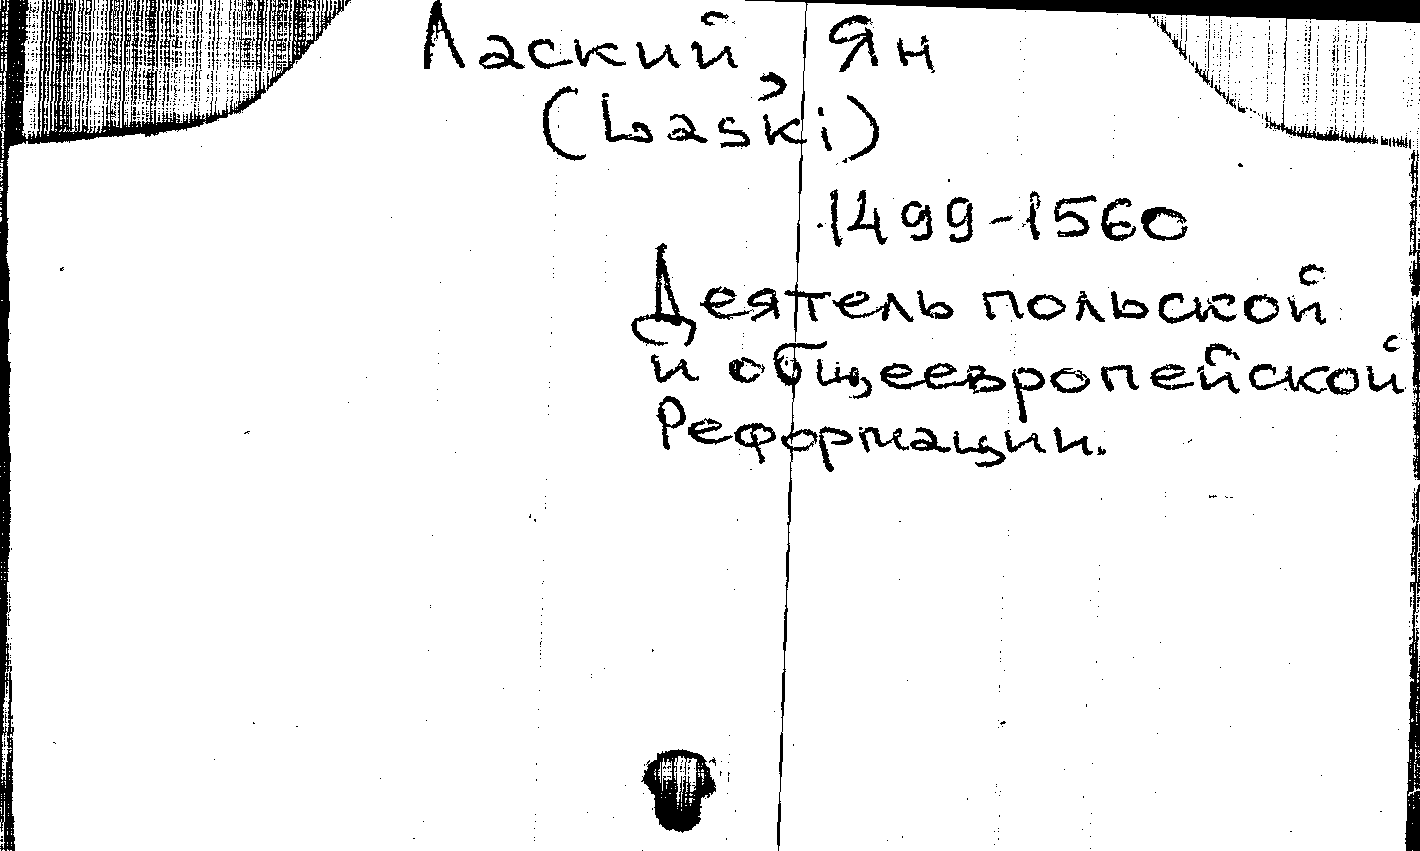 Лаский, Ян
(Łaski)
1499-1560
Деятель польской
и общеевропейской
Реформации.